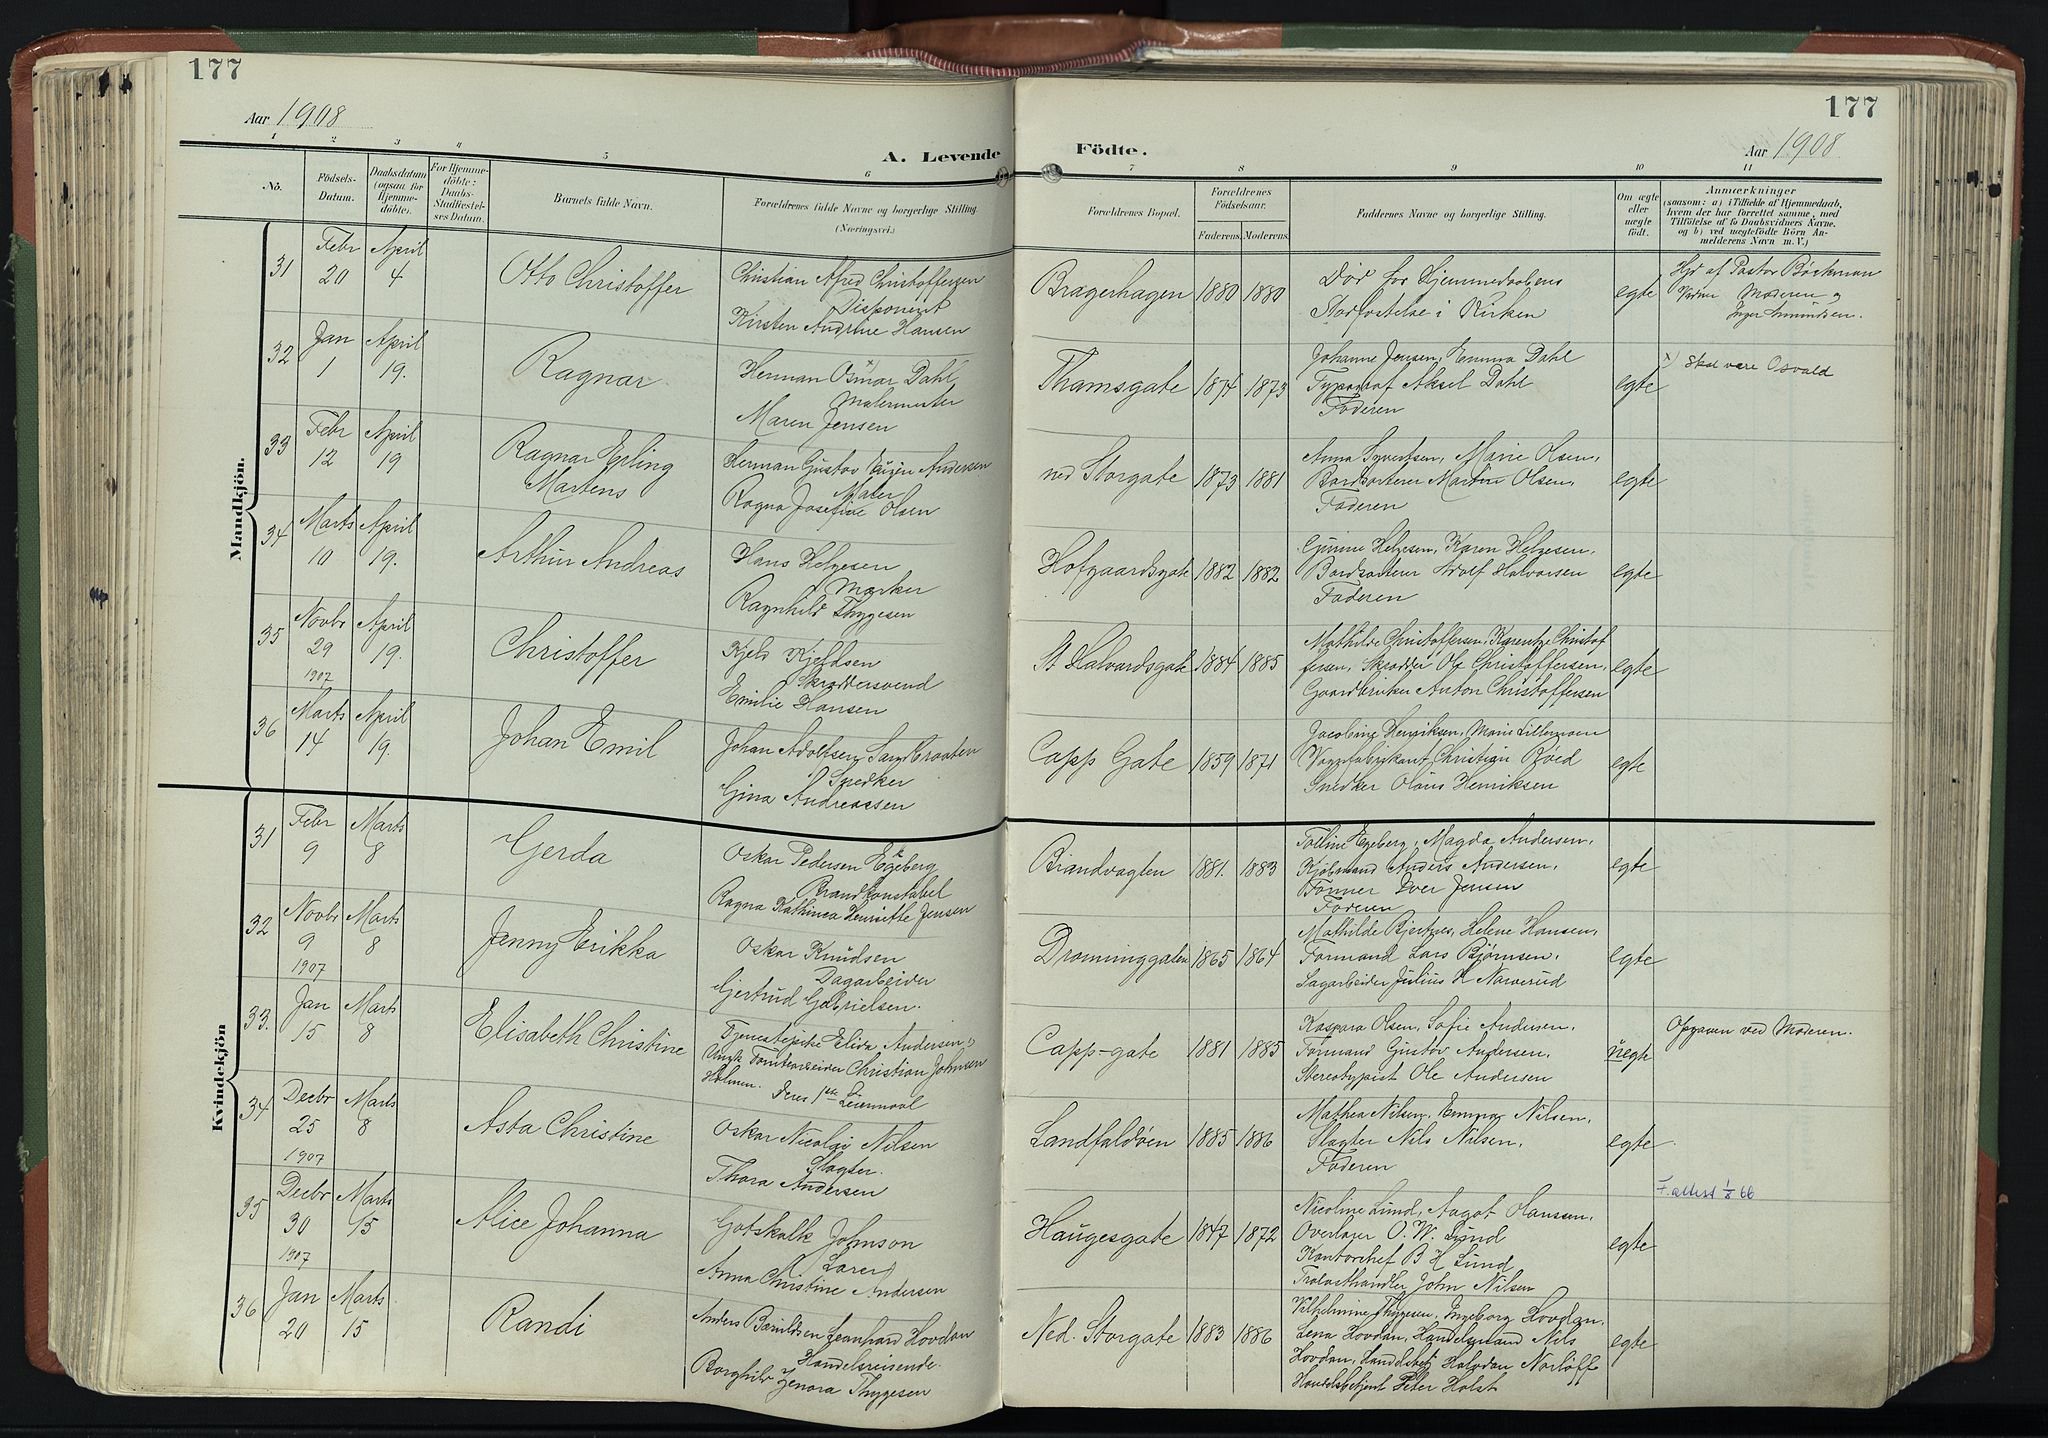 177
177
Aar 1908
A. Levende Födte.
Aar 1908
1 2 3 4 5 6 7 8 9 10 11
No.
Födsels-Datum.
Daabsdatum (ogsaa for Hjemme-döbte).
For Hjemme-döbte: Daabs-Stadfæstel-ses Datum.
Barnets fulde Navn.
Forældrenes fulde Navne og borgerlige Stilling. (Næringsvei.)
Forældrenes Bopæl.
Forældrenes Födselsaar.
Faderens. Moderens.
Faddernes Navne og borgerlige Stilling.
Om ægte eller uægte födt.
Anmærkninger
(saasom: a) i Tilfælde af Hjemmedaab, hvem der har forrettet samme, med Tilföielse af to Daabsvidners Navne. og b) ved uægtefödte Börn An-melderens Navn m. V.)
Mandkjön.
31 Febr 20 April 4 Otto Christoffer
Christian Alfred Christoffersen
Disponent
Kirsten Andrine Hansen
Bragerhagen 1880 1880
Død før Hjemmedaabens
Stadfæstelse i Kirken
egte
Hjd af Pastor Böckman
Vidner Moderen og
Inger Amundsen.
32 Jan 1 April 19. Ragnar
Herman Osmar x) Dahl
Malermester
Maren Jensen
Thamsgate 1874 1873
Johanne Jensen, Emma Dahl
Typograf Aksel Dahl
Faderen
egte
x) skal være Osvald
33 Febr 12 April 19 Ragnar Erling
Martens
Herman Gustav Eugen Andersen
Maler
Ragna Josefine Olsen
ned Storgate 1873 1881
Anna Syvertsen, Marie Olsen,
Bordsorterer Martin Olsen,
Faderen
egte
34 Marts 10 April 19. Arthur Andreas
Hans Helgesen
Mærker
Ragnhild Thygesen
Hofgaardsgate 1882 1882
Gunne Helgesen, Karen Helgesen,
Bordsorterer Adolf Halvorsen
Faderen
egte
35 Novbr 29 1907 April 19. Christoffer
Kjeld Kjeldsen
Skræddersvend
Emilie Hansen
St Halvardsgate 1884 1885
Mathilde Christoffersen, Karentze Christof
fersen, Skrædder Ole Christoffersen,
Gaardbruker Anton Christoffersen
egte
36 Marts 14 April 19. Johan Emil
Johan Adolfsen Sandbraaten
Snedker
Gina Andreassen
Capp Gate 1859 1871
Jacobine Henriksen, Marie Lillemoen
Vognfabrikant Christian Røed
Snedker Olaus Henriksen
egte
Kvindekjön
31 Febr 9 Marts 8 Gerda
Oskar Pedersen Egeberg
Brandkonstabel
Ragna Kathinca Henriette Jensen
Brandvagten 1881. 1883
Egeberg, Magda Andersen,
Kjøbmand Anders Andersen,
Tømmer Iver Jensen
Faderen
egte
32 Novbr 9 1907 Marts 8 Jenny Erikka
Oskar Knudsen
Dagarbeider
Gjertrud Gabrielsen.
Dronninggaten 1865 1864
Mathilde Bjertnes, Helene Hansen,
Formand Lars Bjørnsen,
Sagarbeider Julius H Narverud
egte
33. Jan 15 Marts 8 Elisabeth Christine
Tjenestepike Elida Andersen,
Ungk Tomtearbeider Christian Johnsen
Holmen. Deres 1ste Leiermaal
Capp-gate 1881 1885
Kaspara Olsen, Sofie Andersen,
Formand Gustav Andersen,
Stereotypist Ole Andersen
uegte
Opgaven ved Moderen.
34 Decbr 25 1907 Marts 8 Asta Christine
Oskar Nicolai Nilsen
Slagter.
Thora Andersen
Landfaldøen 1885 1886
Mathea Nilsen, Emma Nilsen,
Slagter Nils Nilsen,
Faderen
egte
35 Decbr 30 1907 Marts 15 Alice Johanna
Gotskalk Johnson
Lærer
Anna Christine Andersen
Haugesgate 1847 1872
Nicoline Lund, Aagot Hansen,
Overlærer O. W. Lund
Kontorchef B H Lund
Trælasthandler John Nilsen
egte
F. attest 1/8 66
36 Jan 20 Marts 15 Randi
Anders Bærildsen Leonhard Hovdan
Handelsreisende.
Borghild Zenora Thygesen
Ned. Storgate 1883 1886
Vilhelmine Thygesen, Ingeborg Hovdan,
Lena Hovdan, Handelsmand Nils
Hovdan, Handelsbetj Halvdan Norløff
Handelsbetjent Peter Holst
egte